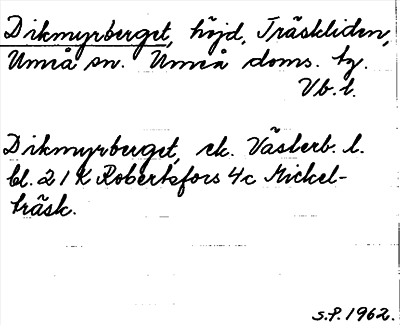 Dikmyrberget, höjd, Träskliden,
Umeå sn. Umeå doms. tg.
Vb. l.
Dikmyrberget, ek. Västerb. l.
bl. 21 K Robertsfors 4c Mickel-
träsk.
s.f. 1962.